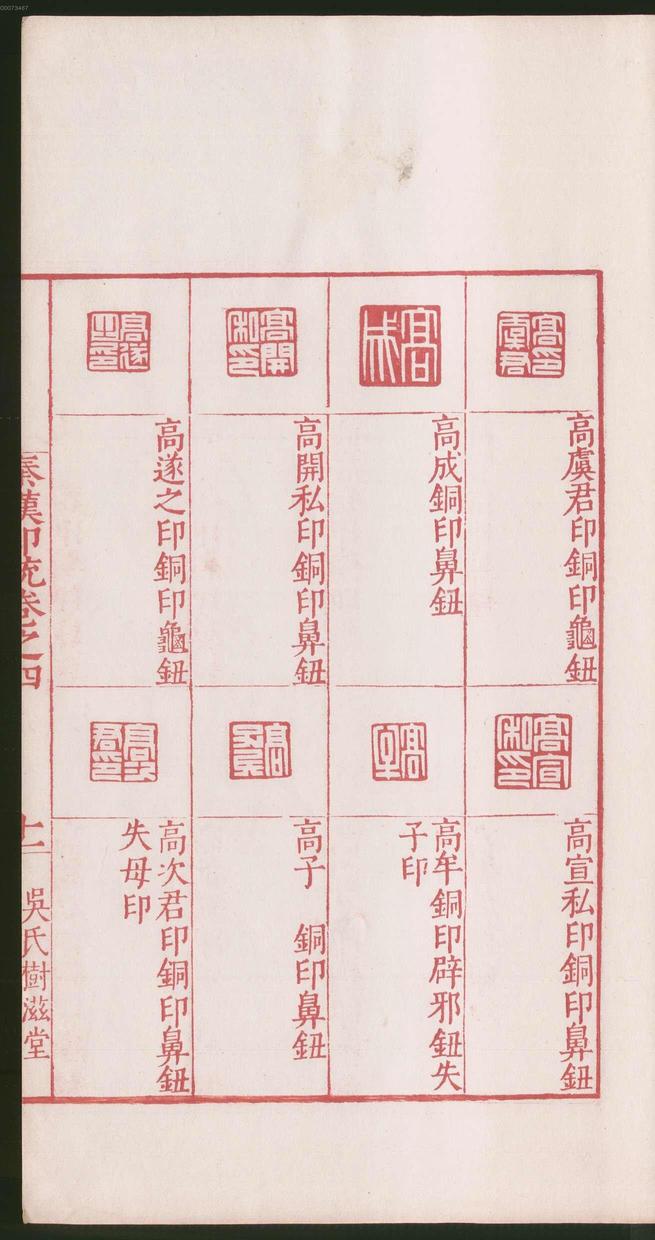 00073467
高虞君印銅印龜鈕
高成銅印鼻鈕
高開私印銅印鼻鈕
高遂之印銅印龜鈕
高宣私印銅印鼻鈕
高牟銅印辟邪鈕失
子印
高子　銅印鼻鈕
高次君印銅印鼻鈕
失母印
秦漢印統卷之四
吳氏樹滋堂